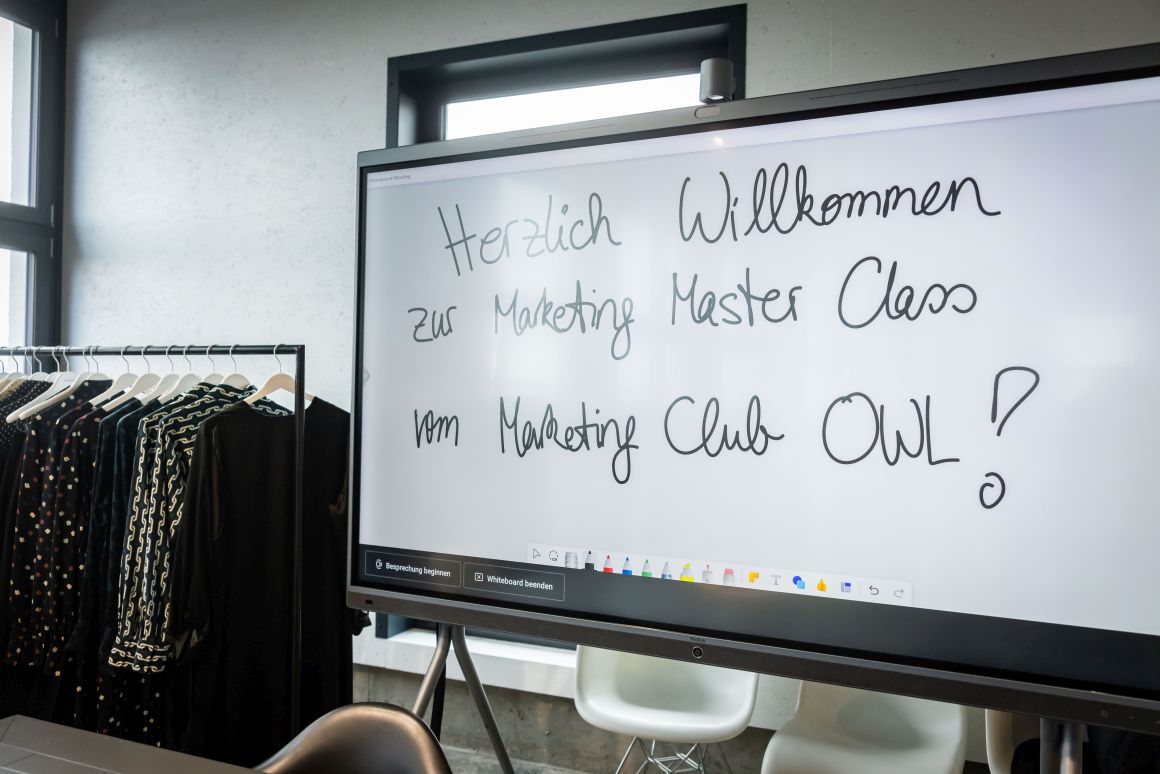 Whiteboard Meeting
Herzlich Willkommen
zur Marketing Master Class
vom Marketing Club OWL!
Besprechung beginnen
Whiteboard beenden
Yealink